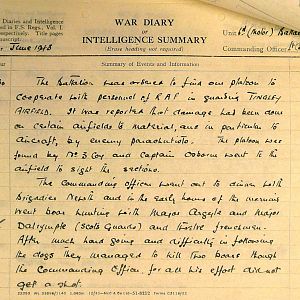 WAR DIARY
of
INTELLIGENCE SUMMARY
(Erase heading not required)
Diaries and Intelligence
d in F.S. Regs., Vol. I.
June 1943
Unit
Commanding Officer
Summary of Events and Information
The Battalion was ordered to find one platoon to
cooperate with personnel of R.A.F in guarding TINGLEY
AIRFIELD. It was reported that damage had been done
on certain airfields to material, and in particular to
aircraft, by enemy parachutists. The platoon was
found by No 3 Coy and Captain Osborn went to the
airfield to sight the sections.
The Commanding Officer went out to dinner with
Brigadier and in the early hours of the morning
went boar hunting with Major Argyle and Major
Dalrymple (Scots Guards) and twelve frenchmen.
After much hard going and difficulty in following
the dogs they managed to kill two boars though
the Commanding Officer for all his effort did not
get a shot.